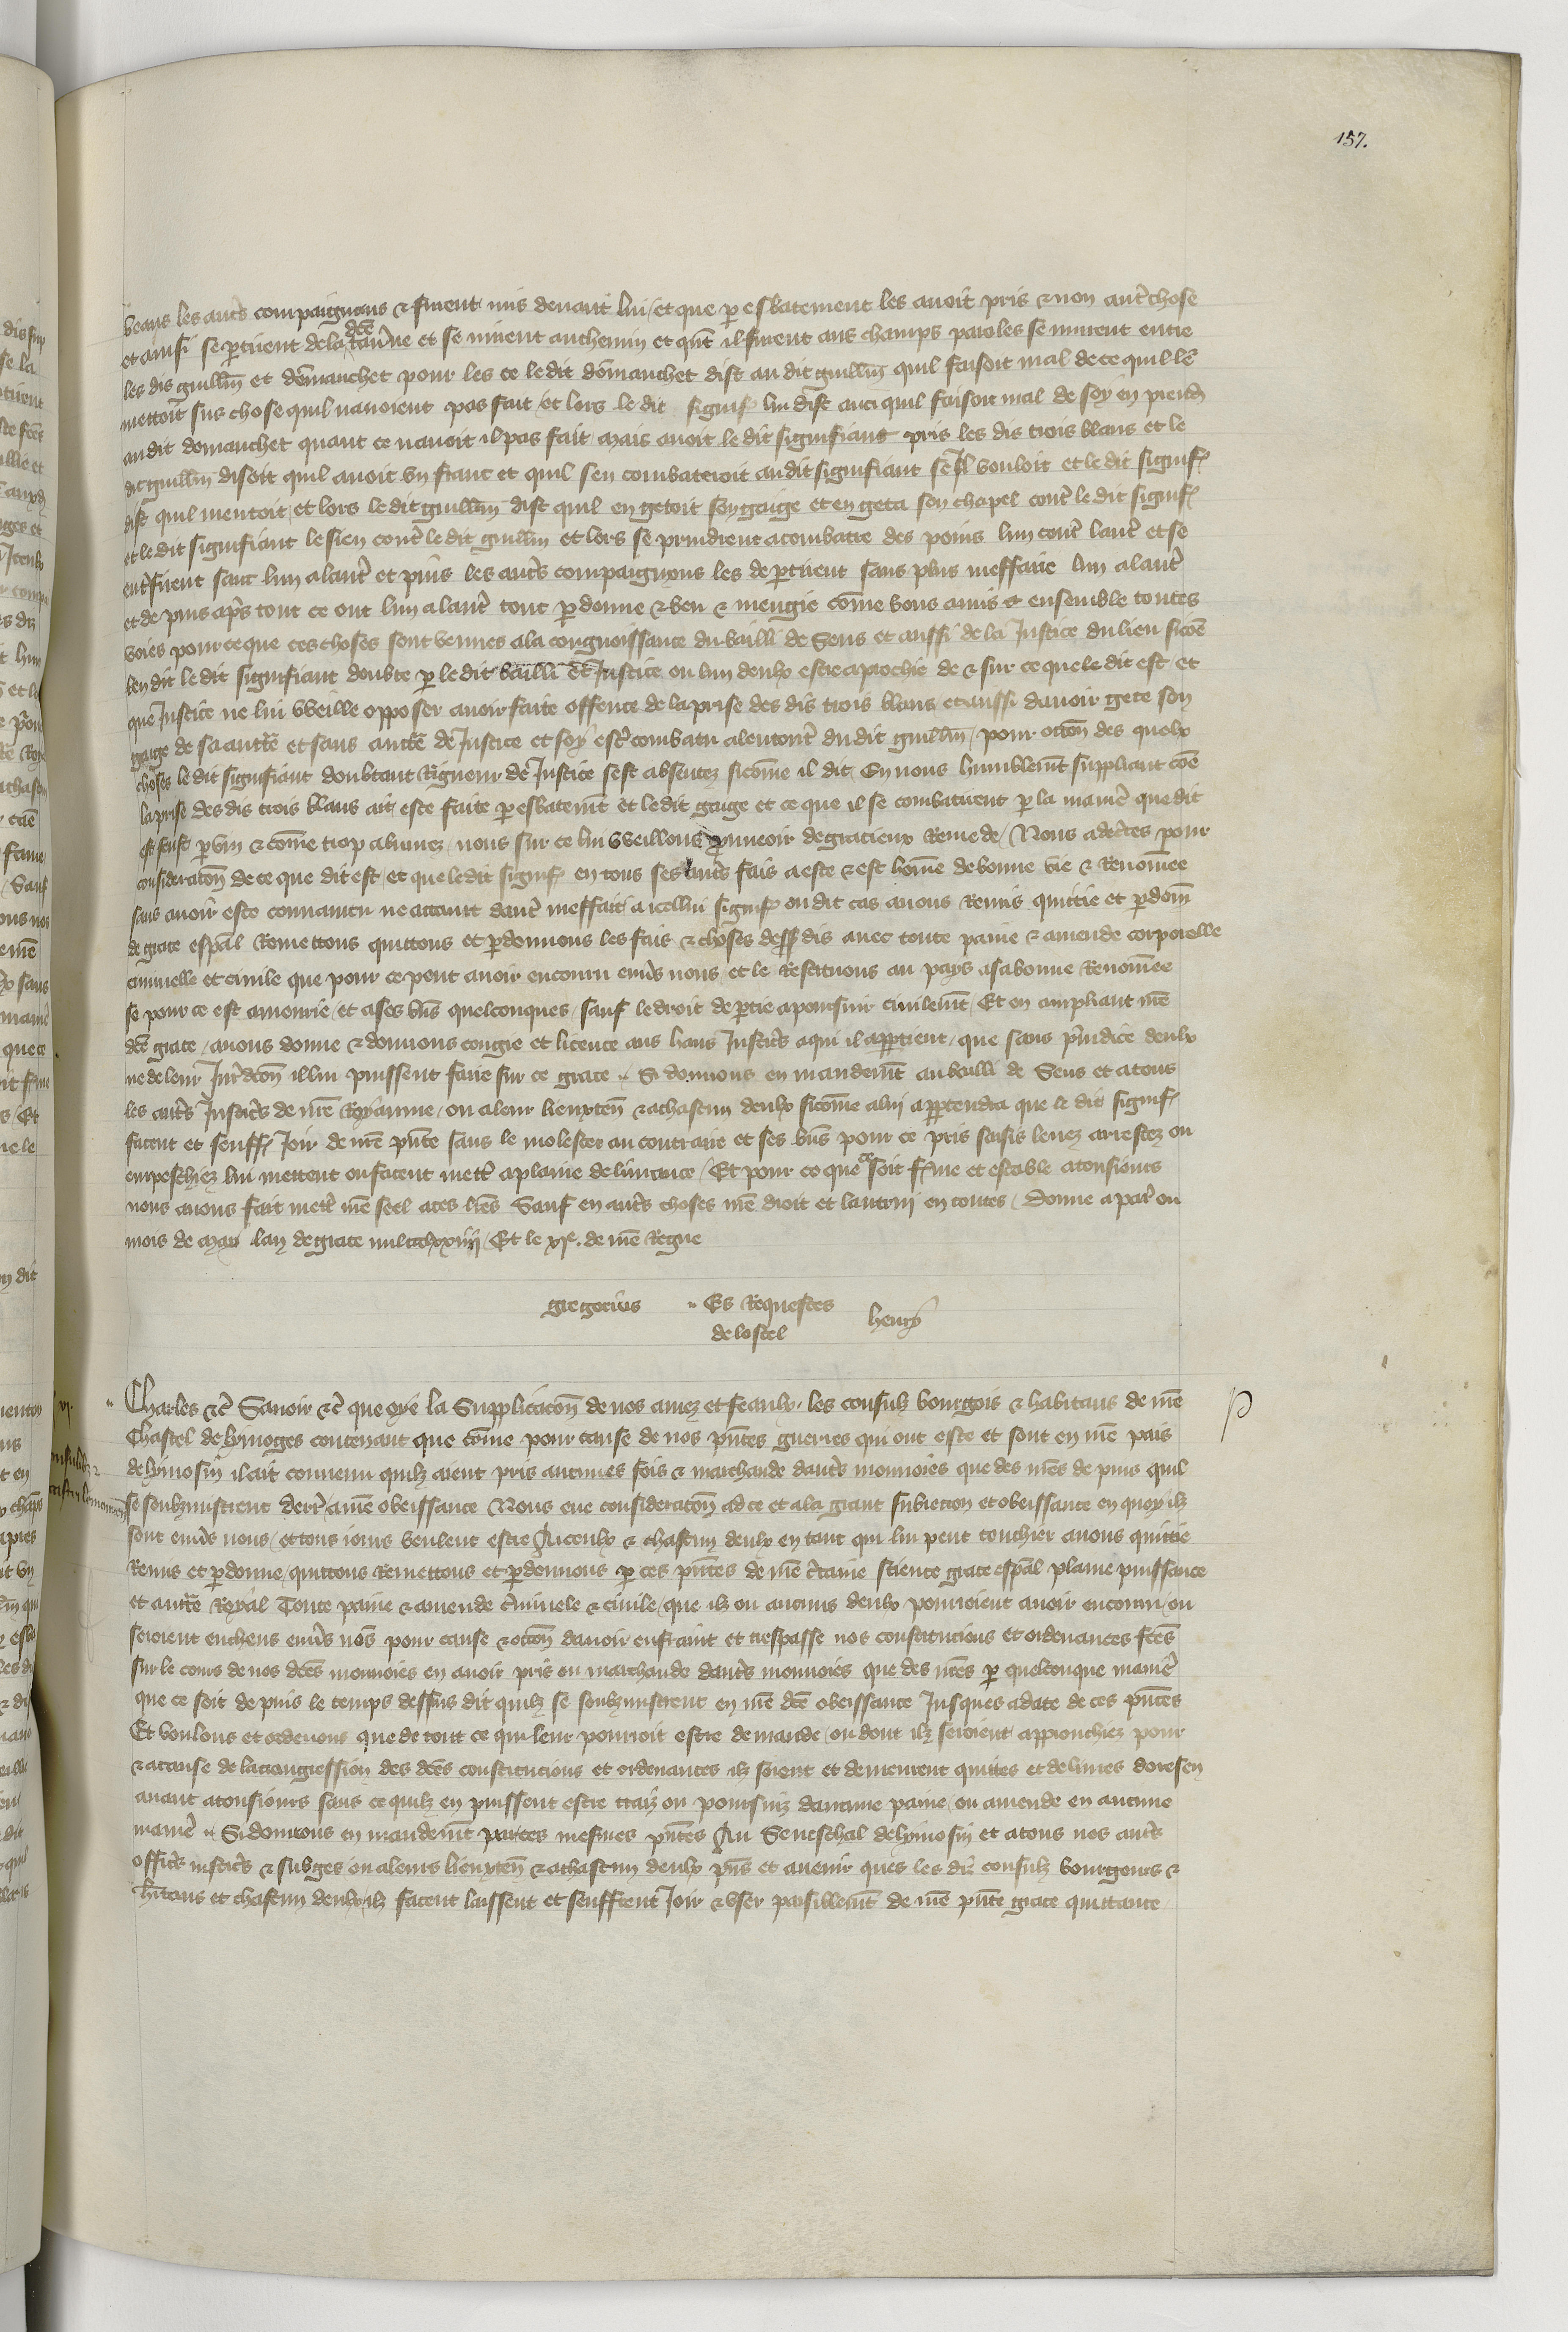 157.
veans les autres compaignons & furent mis devant lui / et que par esbatement les avoit pris & non autre chose
et ainsi se partirent de la dce taverne et se mirent au chemin et qnt il furent aus champs paroles se murent entre
les dis guillm et demanchet pour les ce le dit domanchet dist au dit guillm quil faisoit mal de ce quil le
mettoit sus chose quil navoient pas fait / et lors le dit signif lui dist quil faisoit mal de soy en prendre
au dit domanchet quant ce navoit il pas fait mais avoit le dit signifiant pris les dis trois blans et le
dit guillm disoit quil avoit un franc et quil sen combateroit au dit signifiant se il vouloit et le dit signif
dist quil mentoit / et lors le dit guillm dist quil en getoit son gaige et en geta son chapel contre le dit signif
et le dit signifiant le sien contre le dit guillm et lors se prindrent a combatre des poins lun contre lautre et se
entrefirent sanc lun a lautre et puis les autres compaignons les departirent sans plus meffaire lun a lautre
et depuis apres tout ce ont lun a lautre tout pardonne & beu & mengie come bons amis & ensemble toutes
voies pour ce que ces choses sont venues a la congnoissance du bailli de Sens et aussi de la Justice du lieu sicome
len dit le dit signifiant doubte par le dit bailli et Justice ou lun deulx estre aprochie de & sur ce que le dit est et
que Justice ne lui vueille opposer avoir faite offence de la prise des dis trois blans et aussi davoir gete son
gaige de sa auctte et sans auctte de Justice et soy estre combatu alencontre du dit guillm / pour occon des quelx
choses le dit signifiant doubtant Rigueur de Justice sest absentez sicome il dit En nous humblemt suppliant come
la prise des dis trois blans ait este faite par esbatemt et le dit gaige et ce que il se combatirent par la maniere que dit
est feust par vin & come trop abuvrez nous sur ce lui vueillons pourveoir de gracieux Remede / Nous adecertes pour
consideracon de ce que dit est / et que le dit signif en tous ses autres fais a este & est home de bonne vie & Renomee
sans avoir este convaincu ne attaint dautre meffait a icellui signif ou dit cas avons Remis quittie et pardone
de grace espal Remettons quittons et pardonnons les fais & choses dessus dis avec toute paine & amende corporelle
criminelle et civile que pour ce pout avoir encouru envers nous et le Restituons au pays a sa bonne Renomee
se pour ce est amenrie / et a ses bns quelconques / sauf le droit de partie a poursuir civilemt / Et en ampliant nre
dce grace / avons donne & donnons congie et licence aus haus Justices a qui il appartient / que sans preiudice deulx
ne de leur Juridcon il lui puissent faire sur ce grace .. Si donnons en mandemt au bailli de Sens et a tous
les autres Justices de nre Royaume / ou a leur lieuxten & a chascun deulx sicome a lui appartendra que le dit signif
facent et seuffr Joir de nre pnte sans le molester au contraire et ses bns pour ce pris saisis levez arrestez ou
empeschiez lui mettent ou facent mettre a plaine delivrance / Et pour ce que ce soit ferme et estable a tousiours
nous avons fait mettre nre seel a ces lres Sauf en autres choses nre droit et lautrui en toutes / Donne a paris ou
mois de may lan de grace mil ccclxxiiij / Et le xje. de nre Regne
gregorius .. Es Requestes henry
de lostel
Charles &c Savoir &c que oye la Supplicacon de nos amez et feaulx les consulz bourgois & habitans de nre
Chastel de lymoges contenant que come pour cause de nos pntes guerres qui ont este et sont en nre pais
de lymosin il ait convenu quilz aient pris aucunes fois & marchande dautres monnoies que des nres depuis quil
se soubzmistrent derr a nre obeissance Nous eue consideracon ad ce et a la grant subiection et obeissance en quoy ilz
sont envers nous / et tous iours veulent estre Aiceulx & chascun deulx en tant qui lui peut touchier avons quittie
Remis et pardonne, quittons Remettons et pardonnons par ces pntes de nre certaine science grace espal plaine puissance
et auctte Royal Toute paine & amende criminele & civile / que ilz ou aucuns deulx pourroient avoir encouru / ou
seroient encheus envers nos pour cause & occon davoir enfraint et trespasse nos constitucions et ordenances fces
sur le cours de nos dces monnoies en avoir pris ou marchande dautres monnoies que des nres par quelconque maniere
que ce soit depuis le temps dessus dit quilz se soubzmistrent en nre dce obeissance Jusques a date de ces pntes
Et voulons et ordenons que de tout ce qui leur pourroit estre demande / ou dont ilz seroient approuchiez pour
& a cause de la trangression des dces constitucions et ordenances ilz soient et demeurent quittes et delivres doresen
avant a tousiours sans ce quilz en puissent estre traiz ou poursuiz daucune paine / ou amende en aucune
maniere .. Si donnons en mandemt par ces mesmes pntes Au Seneschal de lymosin et a tous nos autres
officrs iusticrs & subges ou a leurs lieuxten & a chascun deulx pns et avenir ques les diz consulz bourgois &
hitans et chascun deulx ilz facent laissent et seuffrent Joir & user paisiblemt de nre pnte grace quittance